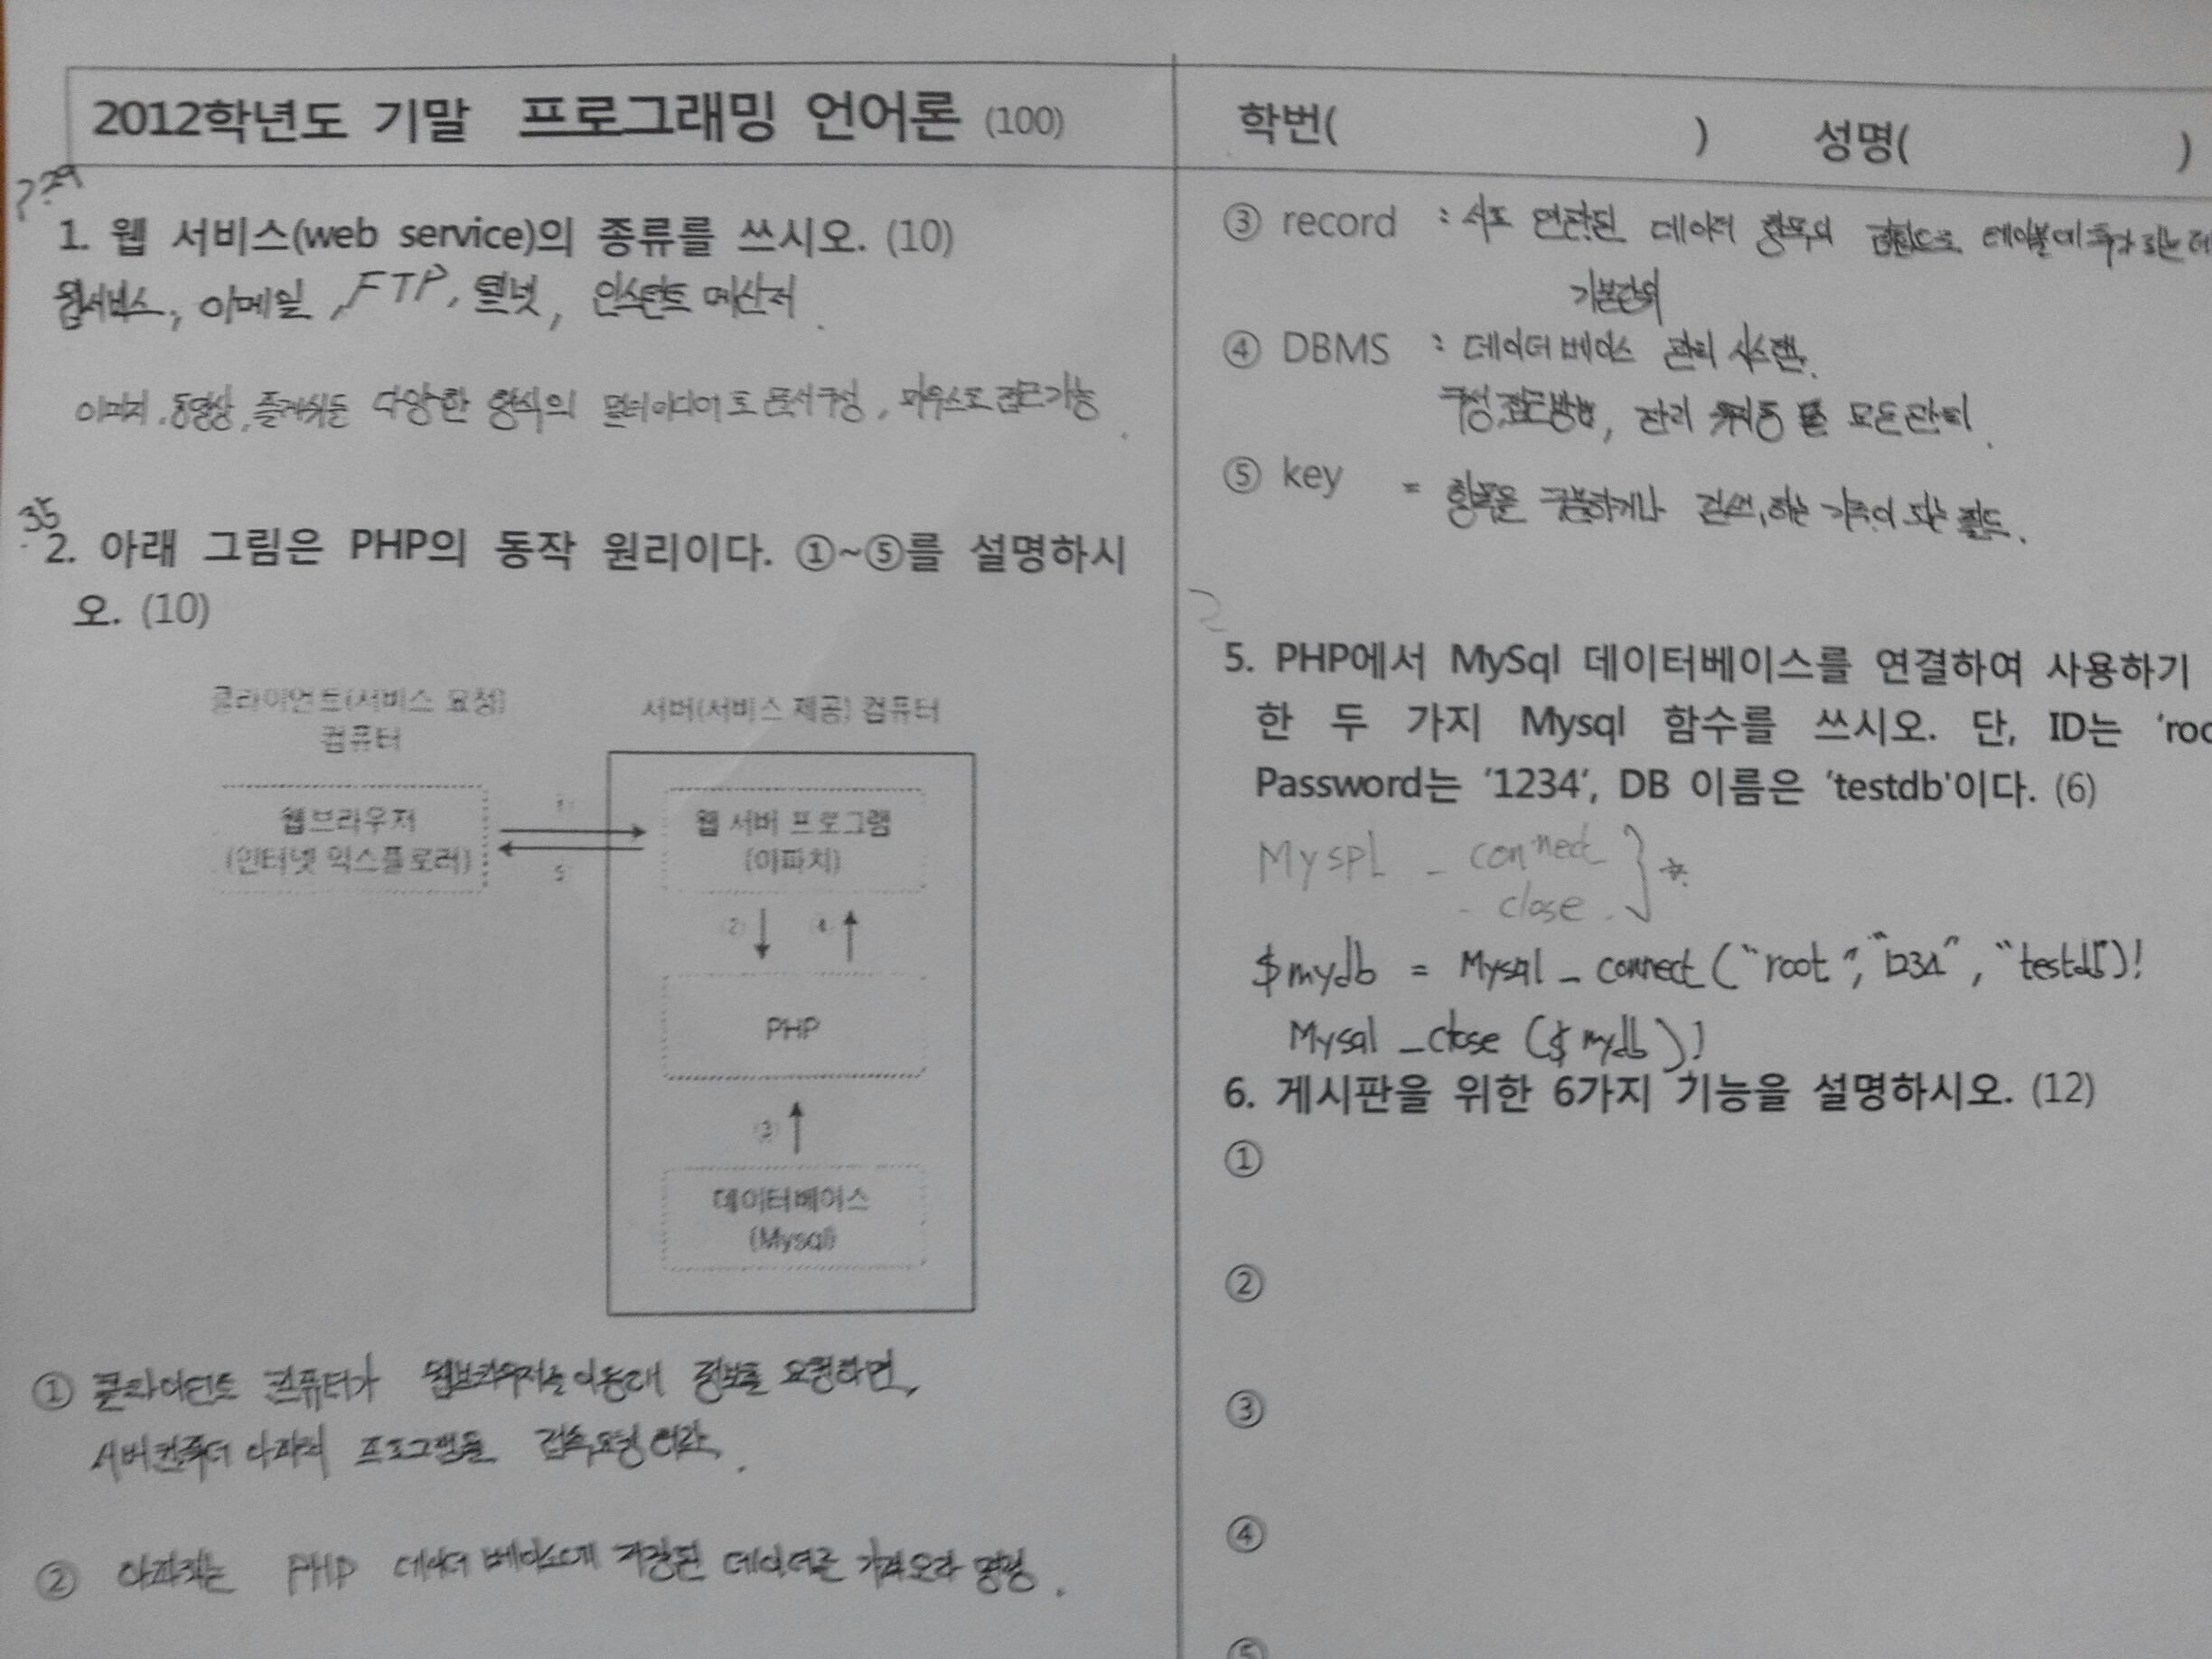 2012학년도 기말 프로그래밍 언어론 (100)
1. 웹 서비스(web service)의 종류를 쓰시오. (10)
웹서비스, 이메일, FTP, 텔넷, 인스턴트 메신저
이미지, 동영상, 플래쉬등 다양한 형식의 멀티미디어로 문서구성, 마우스로 접근가능.
35
2. 아래 그림은 PHP의 동작 원리이다. ①~⑤를 설명하시
오. (10)
클라이언트(서비스 요청)
컴퓨터
서버(서비스 제공) 컴퓨터
웹브라우저
(인터넷 익스플로러)
웹 서버 프로그램
(아파치)
PHP
데이터베이스
(Mysql)
① 클라이언트 컴퓨터가 웹브라우저를 이용해 정보를 요청하면,
서버컴퓨터 아파치 프로그램을 접속요청
② 아파치는 PHP 데이터 베이스에 저장된 데이터를 가져오라 명령.
학번( ) 성명( )
③ record : 서로 연관된 데이터 항목의 집합으로 테이블에 추가 되는 데
기본단위
④ DBMS : 데이터 베이스 관리 시스템.
구성, 접근방법, 관리 유지등 를 모든관리.
⑤ key = 항목을 구분하거나 검색, 하는 기준이 되는 필드.
5. PHP에서 MySql 데이터베이스를 연결하여 사용하기
한 두 가지 Mysql 함수를 쓰시오. 단, ID는 'roo
Password는 '1234', DB 이름은 'testdb'이다. (6)
Myspl - connect
- close.
$mydb = Mysql_connect("root", "1234", "testdb")!
Mysql_close ($mydb)!
6. 게시판을 위한 6가지 기능을 설명하시오. (12)
①
②
③
④
⑤